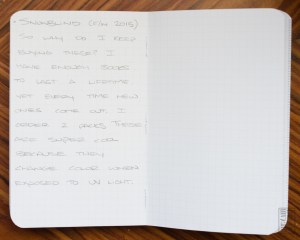 • SNOWBLIND (F/W 2015)
SO WHY DO I KEEP
BUYING THESE? I
HAVE ENOUGH BOOKS
TO LAST A LIFETIME.
YET EVERY TIME NEW
ONES COME OUT I
ORDER 2 PACKS. THESE
ARE SUPER COOL
BECAUSE THEY
CHANGE COLOR WHEN
EXPOSED TO UV LIGHT.